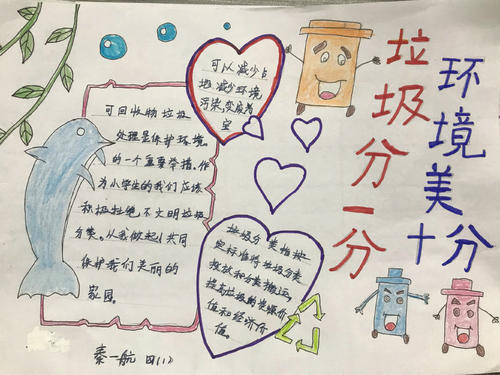 垃圾分一分
环境美十分
可以减少占
地 减少环境
污染,变废为
宝
可回收物垃圾
处理是保护环境
的一个重要举措.作
为小学生的我们应该
积极拒绝不文明垃圾
分类。从我做起!共同
保护我们美丽的
家园。
垃圾分类指按一
定标准将垃圾分类
投放和分类搬运,
提高垃圾的资源价
值和经济价
值。
秦一航 四(1)